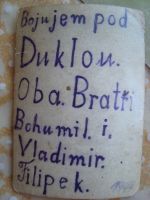 Bojujem pod
Duklou.
Oba. Bratři
Bohumil. i.
Vladimir.
Filipek.